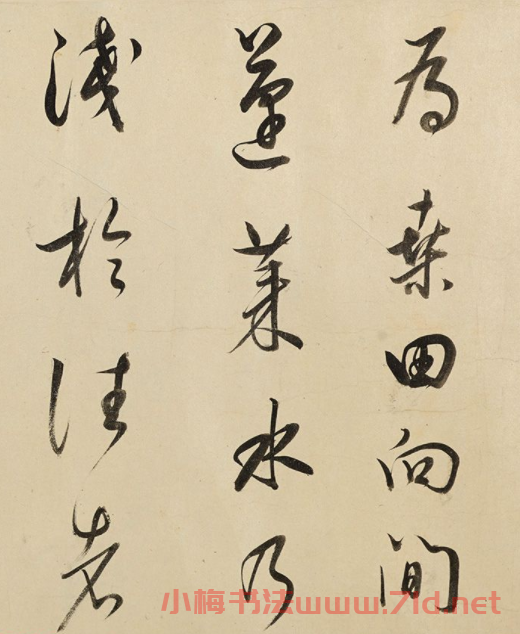 為桑田向間
蓬莱水乃
淺於往者
小梅书法www.7ld.net